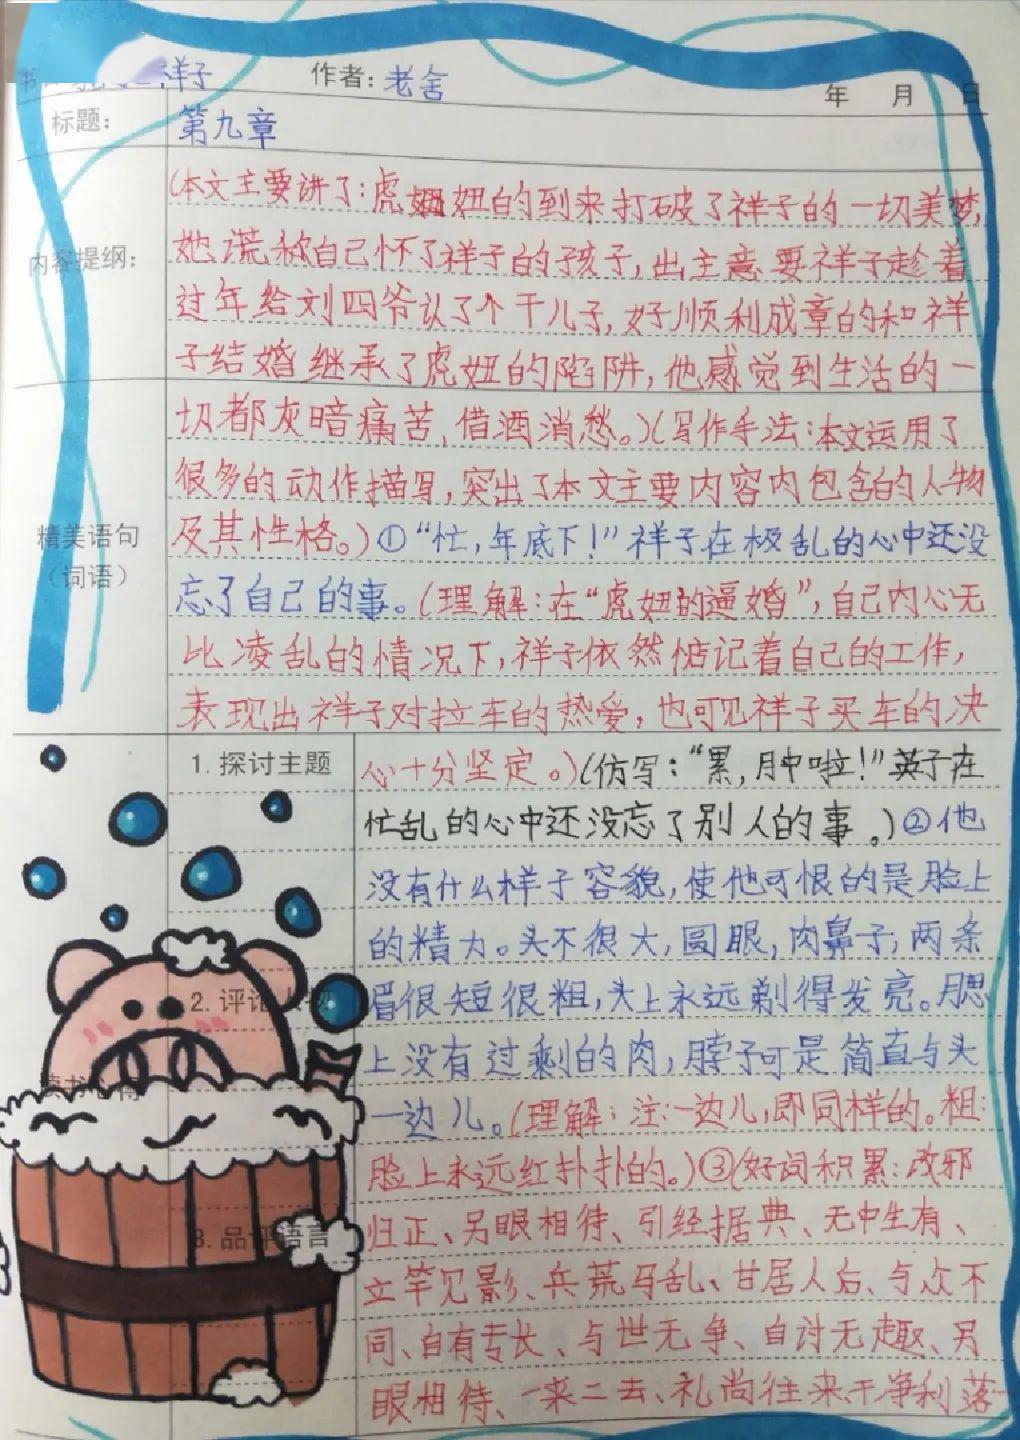 祥子 作者：老舍
年 月 日
标题： 第九章
(本文主要讲了：虎妞妞的到来打破了祥子的一切美梦,
内容提纲： 她谎称自己怀了祥子的孩子，出主意要祥子趁着
过年给刘四爷认了个干儿子，好顺利成章的和祥
子结婚继承了虎妞的陷阱，他感觉到生活的一
切都灰暗痛苦，借酒消愁。)(写作手法：本文运用了
很多的动作描写，突出了本文主要内容内包含的人物
精美语句 及其性格。)①“忙，年底下！”祥子在极乱的心中还没
（词语） 忘了自己的事。(理解：在“虎妞的逼婚”，自己内心无
比凌乱的情况下，祥子依然惦记着自己的工作，
表现出祥子对拉车的热爱，也可见祥子买车的决
1.探讨主题 心十分坚定。)(仿写：“累，月中啦！”英子在
忙乱的心中还没忘了别人的事。)②他
没有什么样子容貌，使他可恨的是脸上
的精力。头不很大，圆眼，肉鼻子，两条
2.评论人物 眉很短很粗，头上永远剃得发亮。腮
上没有过剩的肉，脖子可是简直与头
读书心得 一边儿。(理解：注:一边儿，即同样的。粗：
脸上永远红扑扑的。)③(好词积累：改邪
3.品评语言 归正、另眼相待、引经据典、无中生有、
立竿见影、兵荒马乱、甘居人后、与众不
同、自有专长、与世无争、自讨无趣、另
眼相待、一来二去、礼尚往来干净利落